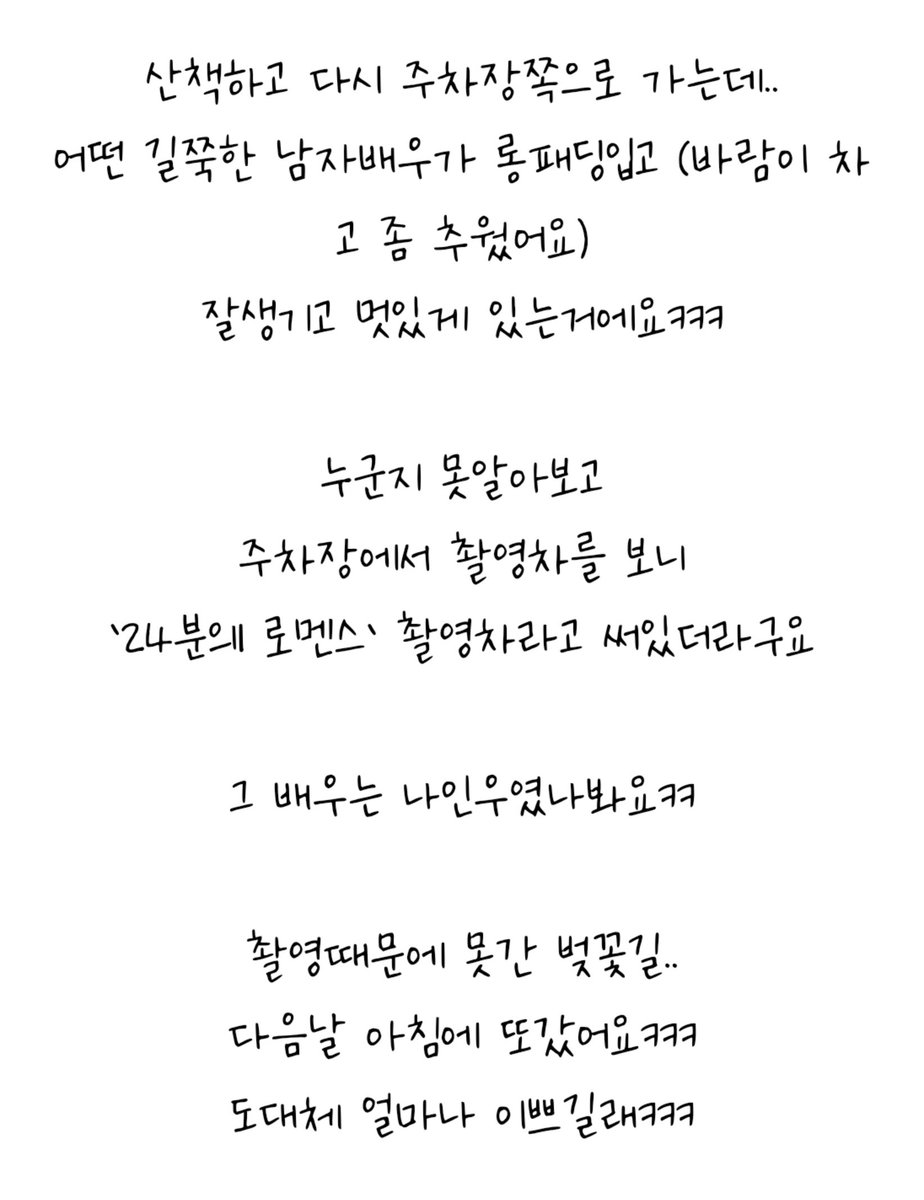 산책하고 다시 주차장쪽으로 가는데..
어떤 길쭉한 남자배우가 롱패딩입고 (바람이 차
고 좀 추웠어요)
잘생기고 멋있게 있는거에요ㅋㅋㅋ
누군지 못알아보고
주차장에서 촬영차를 보니
'24분의 로멘스' 촬영차라고 써있더라구요
그 배우는 나인우였나봐요ㅋㅋ
촬영때문에 못간 벚꽃길..
다음날 아침에 또갔어요ㅋㅋㅋ
도대체 얼마나 이쁘길래ㅋㅋㅋ